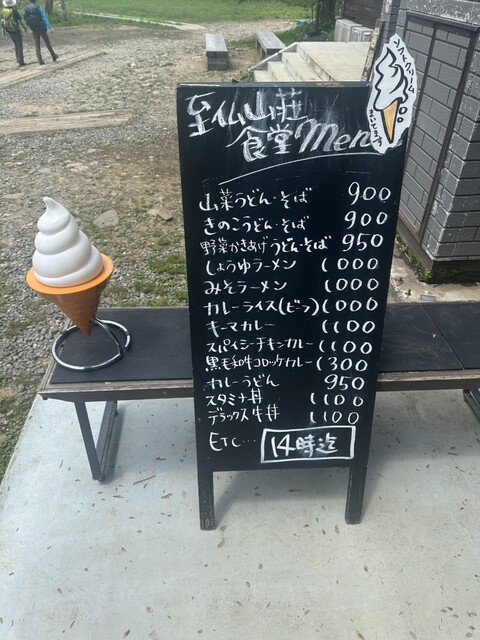 至仏山荘
食堂Menu
ソフトクリーム
山菜うどん・そば 900
きのこうどん・そば 900
野菜かきあげうどん・そば 950
しょうゆラーメン 1000
みそラーメン 1000
カレーライス(ビーフ) 1000
キーマカレー 1100
スパイシーチキンカレー 1100
黒毛和牛コロッケカレー 1300
カレーうどん 950
スタミナ丼 1100
デラックス牛丼 1100
ETC… 14時迄